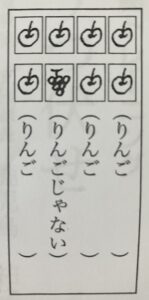 （りんご　　　）
（りんご　　　）
（りんごじゃない　　　）
（りんご　　　）